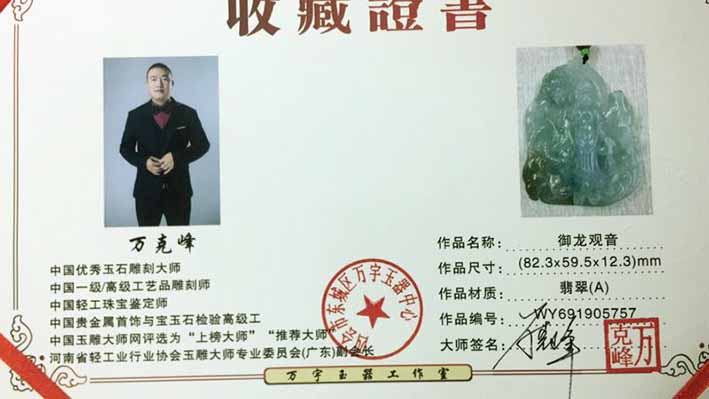 收藏證書
万克峰
中国优秀玉石雕刻大师
中国一级/高级工艺品雕刻师
中国轻工珠宝鉴定师
中国贵金属首饰与宝玉石检验高级工
中国玉雕大师网评选为“上榜大师”“推荐大师”
河南省轻工业行业协会玉雕大师专业委员会(广东)副会长
作品名称: 御龙观音
作品尺寸: (82.3x59.5x12.3)mm
作品材质: 翡翠(A)
作品编号: WY691905757
大师签名:
万克峰
四会市东城区万宇玉器中心
万宇玉器工作室